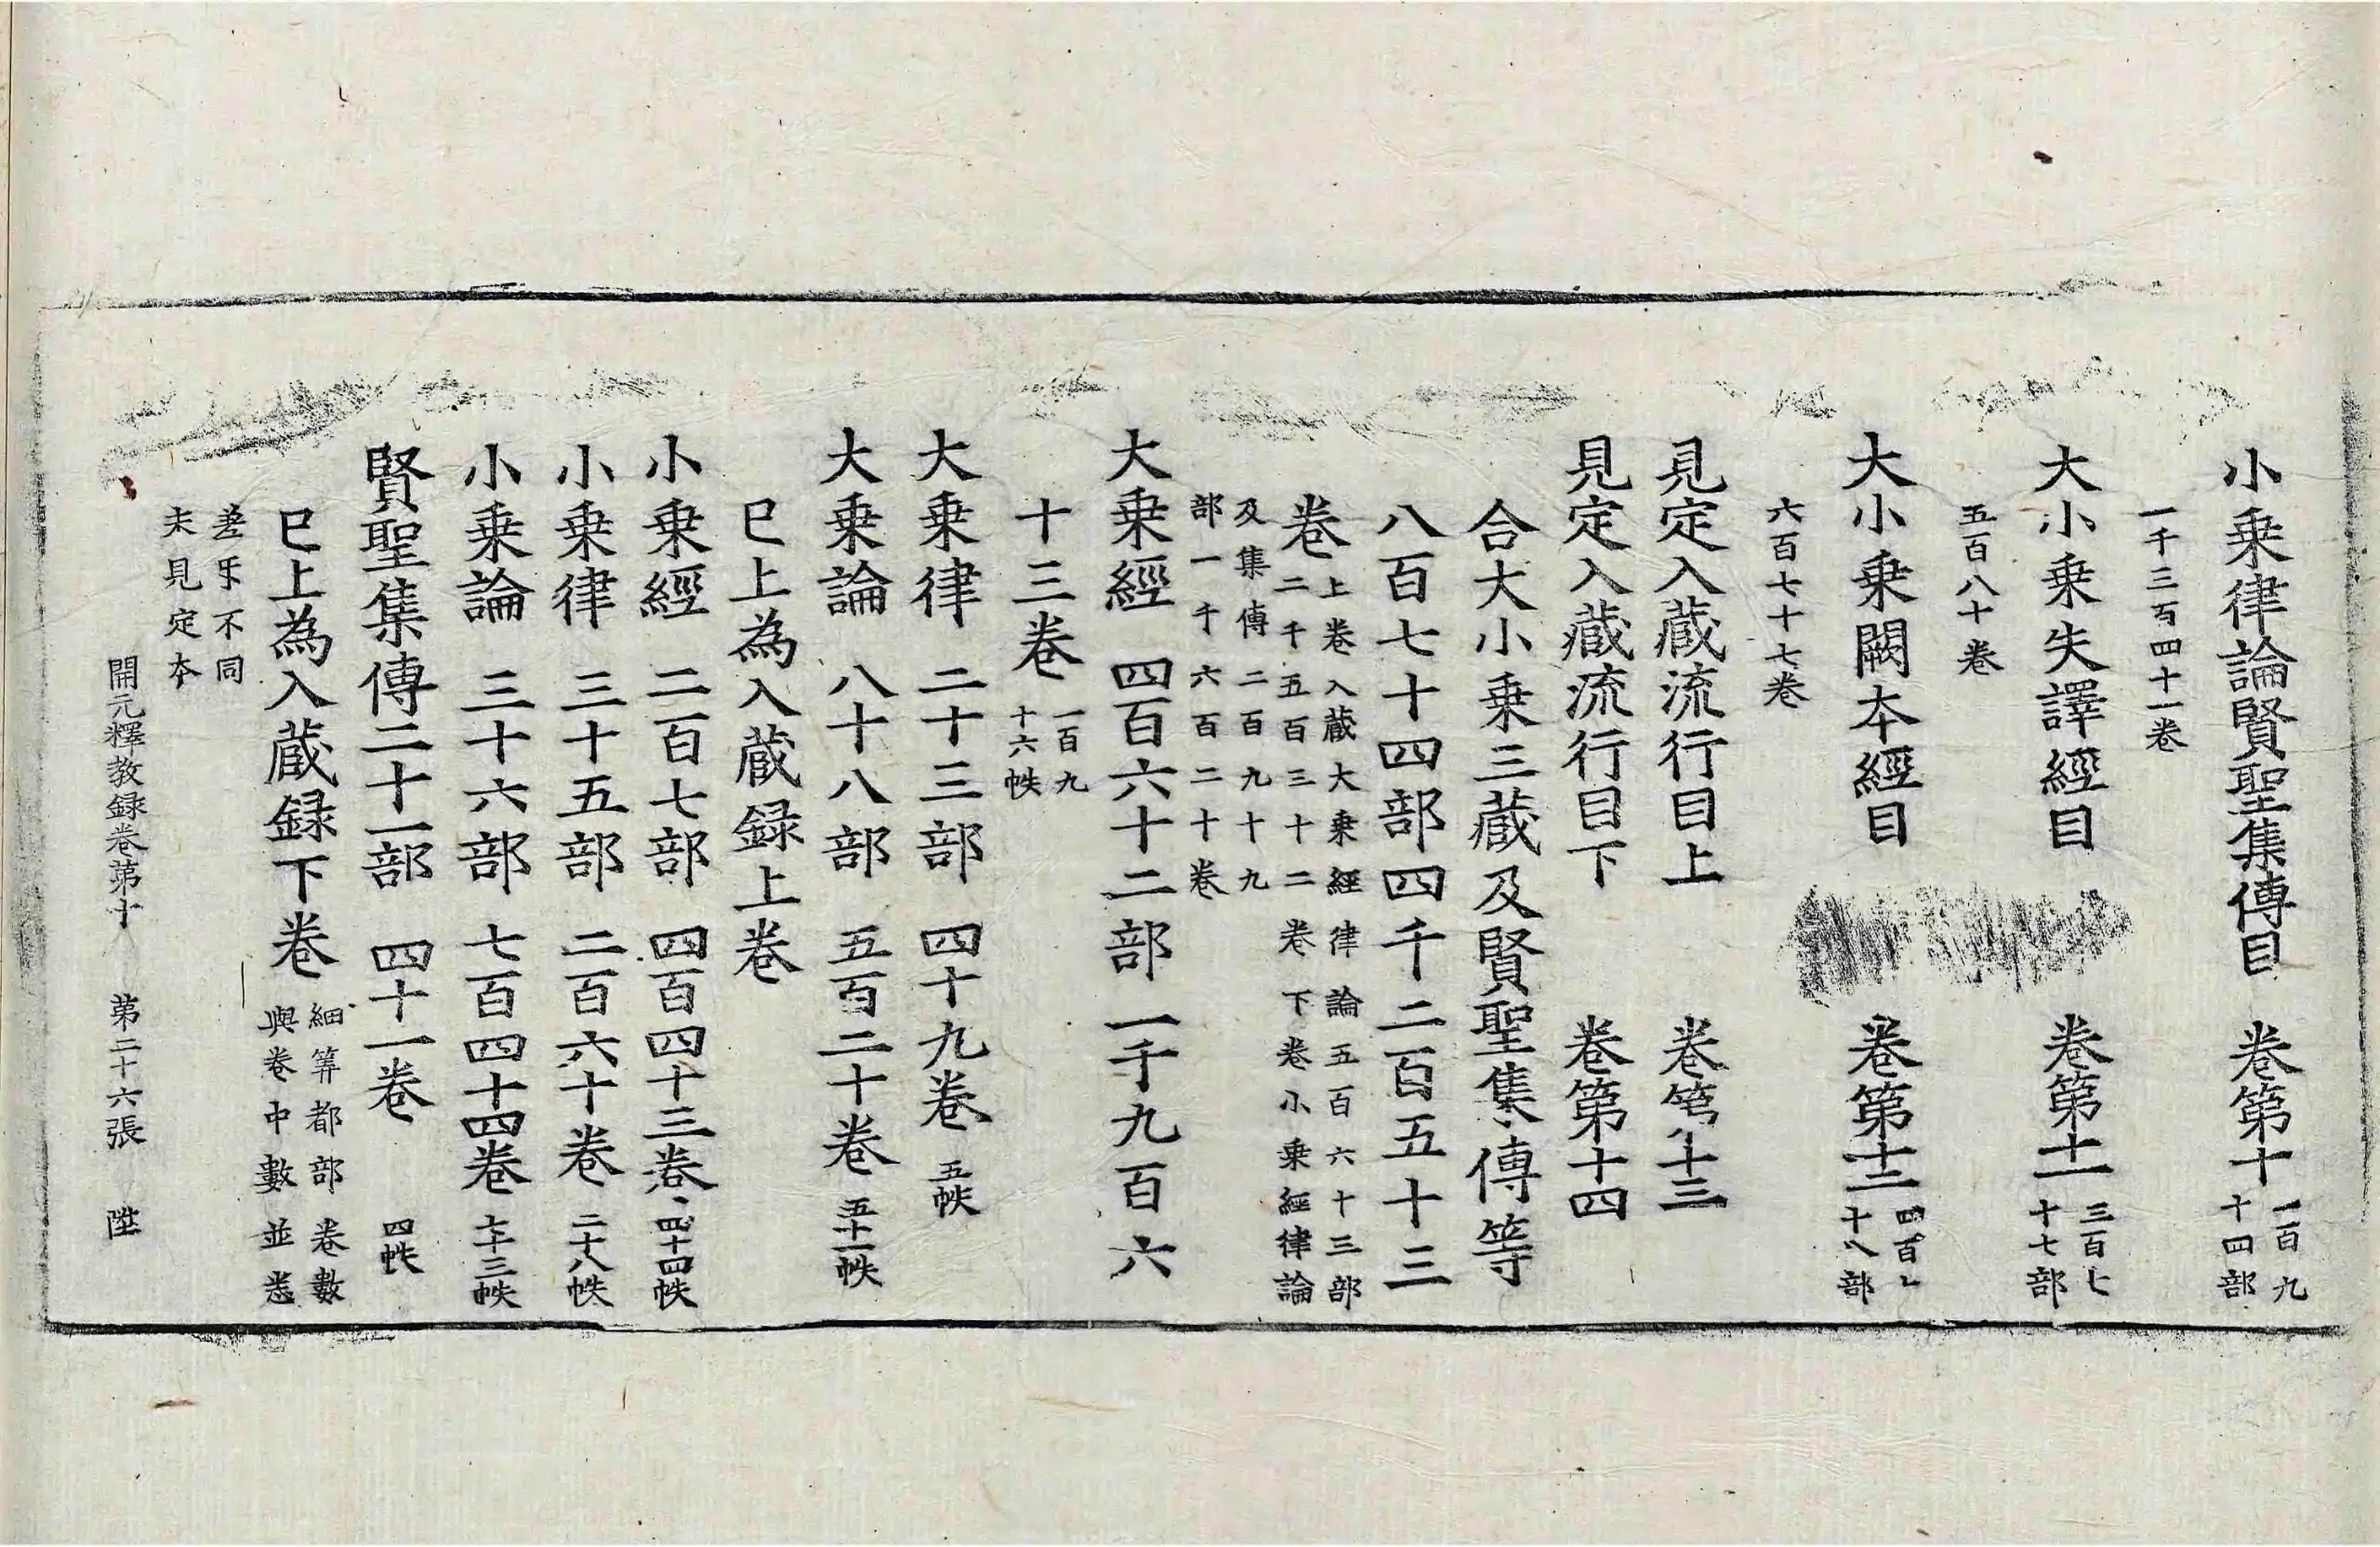 小乗律論賢聖集傳目　卷第十一百九十四部
一千三百四十一卷
大小乗失譯經目　卷第十一三百七十七部
五百八十卷
大小乗闕本經目　卷第十二四百十八部
六百七十七卷
見定入蔵流行目上　卷第十三
見定入蔵流行目下　卷第十四
合大小乗三蔵及賢聖集傳等
八百七十四部四千二百五十三
卷上卷入蔵大乗經律論五百六十三部
二千五百三十二卷下卷小乗經律論
及集傳二百九十九
部一千六百二十卷
大乗經　四百六十二部一千九百六
十三卷一百九十六帙
大乗律　二十三部　四十九卷　五帙
大乗論　八十八部　五百二十卷　五十一帙
已上為入蔵録上卷
小乗經　二百七部　四百四十三卷　四十四帙
小乗律　三十五部　二百六十卷　二十八帙
小乗論　三十六部　七百四十四卷　七十三帙
賢聖集傳二十一部　四十一卷　四帙
已上為入蔵録下卷細筭都部卷數
與卷中數並悉
差乐不同
未見定夲
開元釋教録卷第十　第二十六張　陞